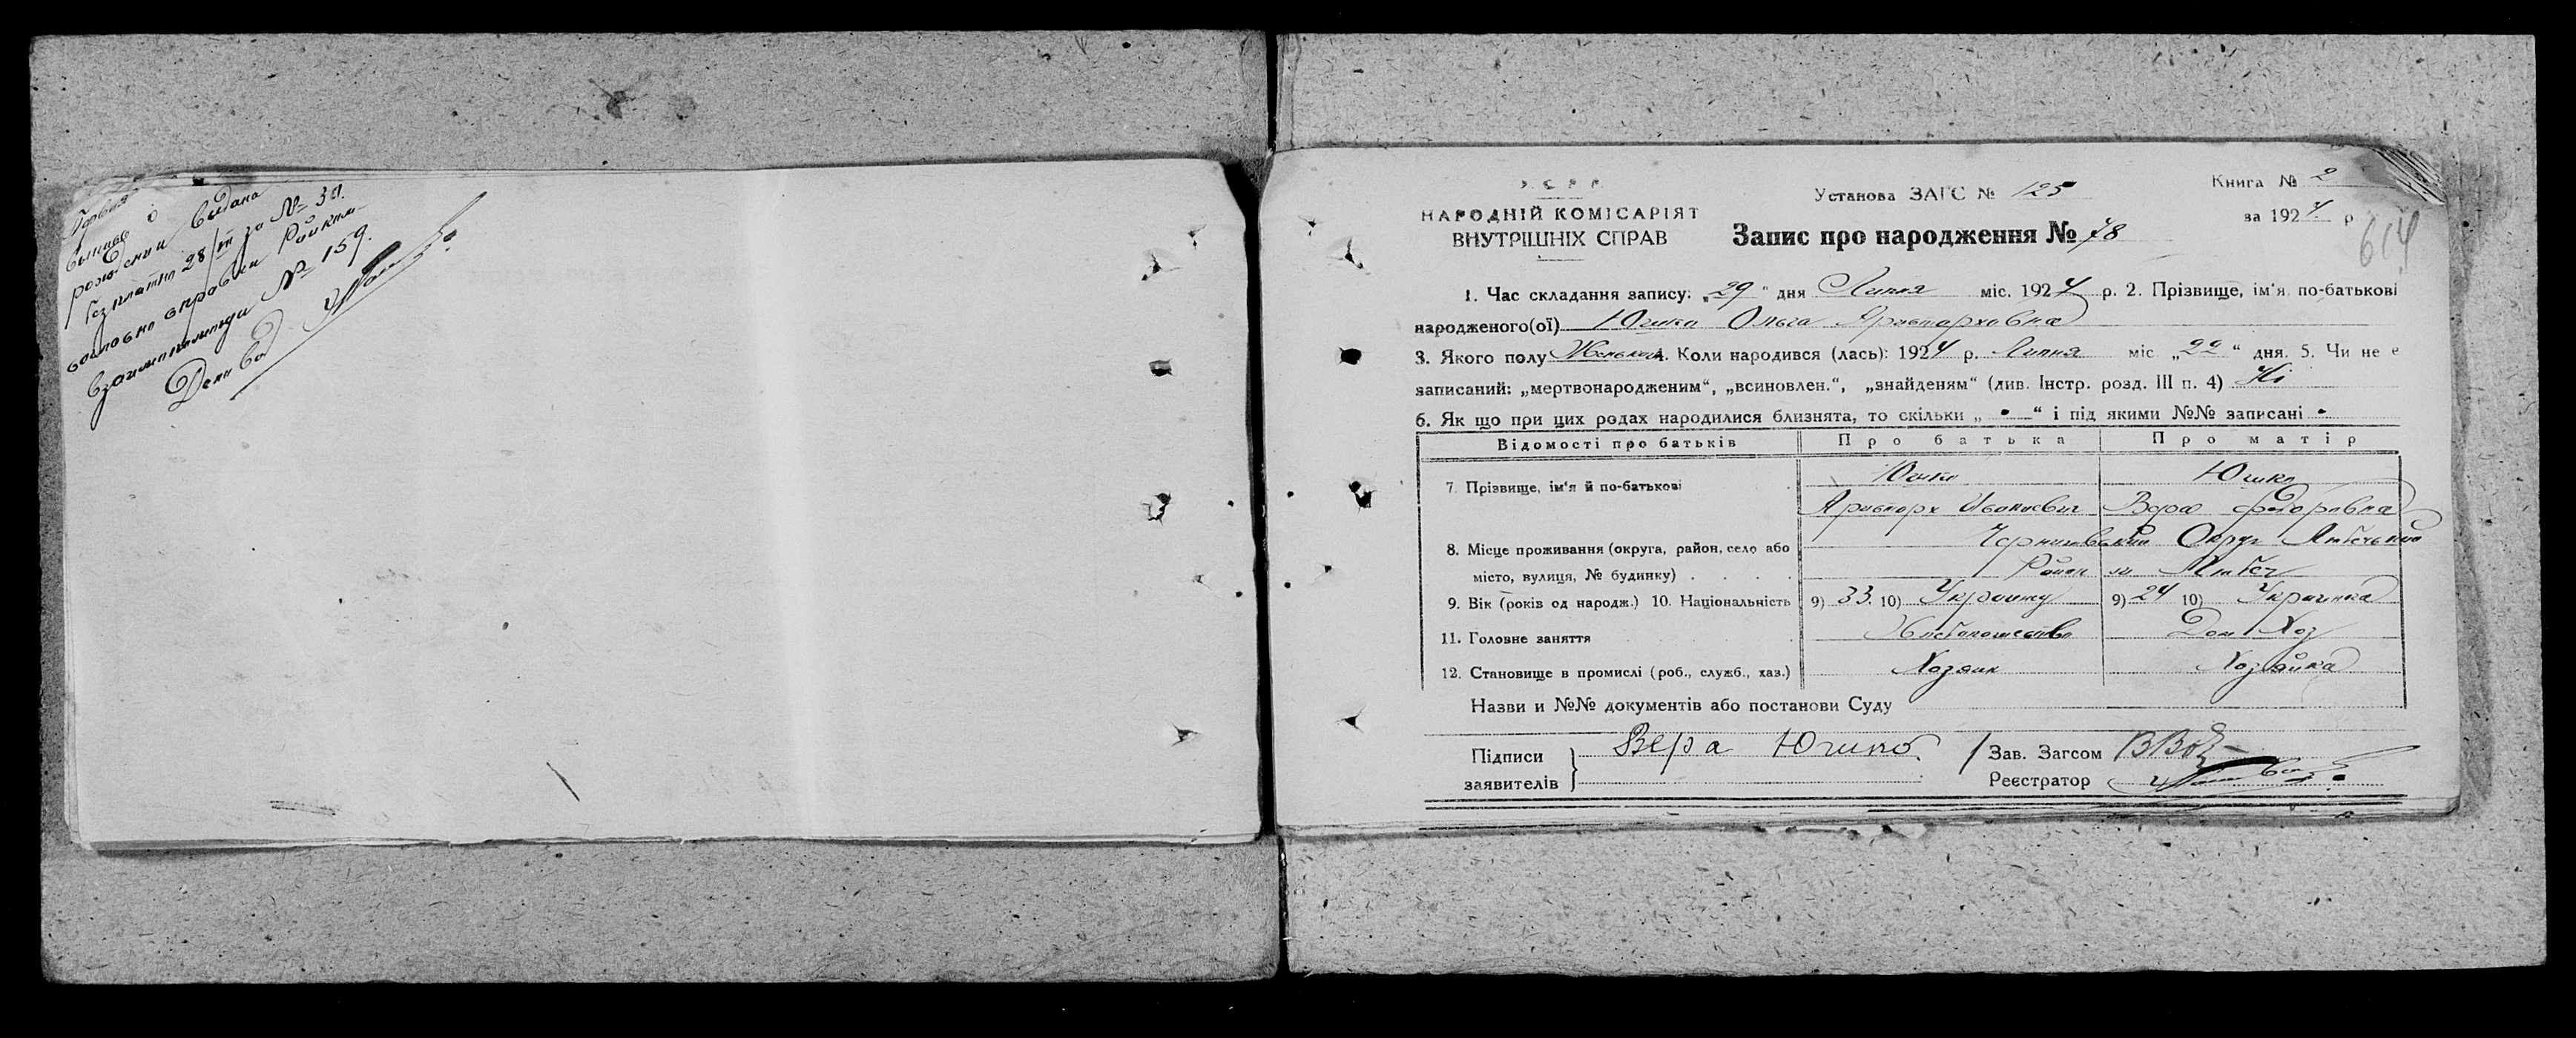 выпись о
рождении выдана
безплатно 28/VII за № 30.
согласно справки Райком-
взаимопомощи № 159.
У.С.Р.Р.
НАРОДНІЙ КОМІСАРІЯТ
ВНУТРІШНІХ СПРАВ
Установа ЗАГС № 125
Книга № 2
за 1924 р
614
Запис про народження № 78
1. Час складання запису: „29" дня Липня міс. 1924 р. 2. Прізвище, ім'я по-батькові
народженого(ої) Юшко Ольга Аристарховна
3. Якого полу Женьский 4. Коли народився (лась): 1924 р. Липня міс „22" дня. 5. Чи не є
записаний: „мертвонародженим", „всиновлен.", „знайденям" (див. Інстр. розд. III п. 4) Ні
6. Як що при цих родах народилися близнята, то скільки „ - " і під якими №№ записані -
Відомості про батьків Про батька Про матір
7. Прізвище, ім'я й по-батькові Юшко Юшко
Аристарх Иванович Вера Федоровна
8. Місце проживання (округа, район, село або Черниговский Округ Любечький
місто, вулиця, № будинку) Район м Любеч
9. Вік (років од народж.) 10. Національність 9) 33. 10) Украинц 9) 24 10) Украинка
11. Головне заняття Хлебопашество Дом Хоз
12. Становище в промислі (роб., служб., хаз.) Хозяин Хозяйка
Назви и №№ документів або постанови Суду
Підписи
заявителів
Вера Юшко
Зав. Загсом
Реєстратор